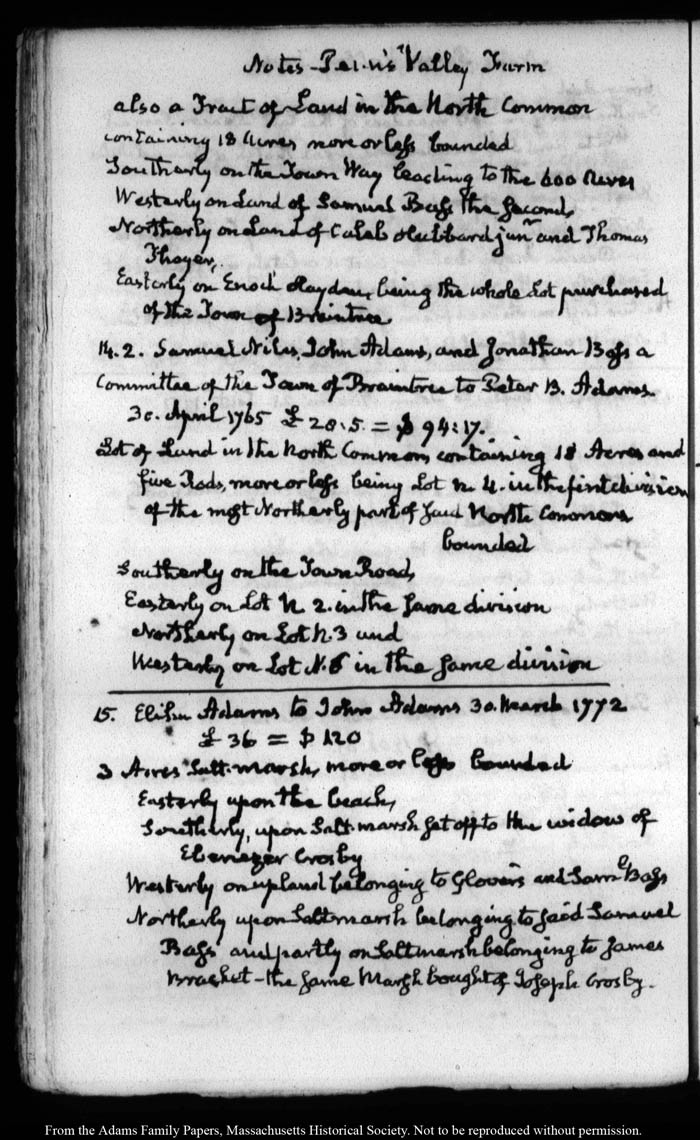 Notes - Penn's Valley Farm
also a Tract of Land in the North Common
containing 18 Acres more or less bounded
Southerly on the Town Way leading to the 600 Acres
Westerly on Land of Samuel Bass the second,
Northerly on Land of Caleb Hubbard junr. and Thomas
Thayer,
Easterly on Enoch Hayden, being the whole Lot purchased
of the Town of Braintree
14.2. Samuel Niles, John Adams, and Jonathan Bass a
Committee of the Town of Braintree to Peter B. Adams.
30. April 1765 £ 28:5. = $ 94:17.
Lot of Land in the North Common, containing 18 Acres and
five Rods, more or less being Lot N. 4. in the first division
of the most Northerly part of said North Common
bounded
Southerly on the Town Road,
Easterly on Lot N. 2. in the same division
Northerly on Lot N. 3 and
Westerly on Lot N. 6 in the same division
15. Elihu Adams to John Adams 30. March 1772
£ 36 = $ 120
3 Acres Salt-marsh, more or less bounded
Easterly upon the beach,
Southerly, upon Salt marsh set off to the widow of
Ebenezer Crosby
Westerly on upland belonging to Glovers and Saml. Bass
Northerly upon Saltmarsh belonging to said Samuel
Bass and partly on Saltmarsh belonging to James
Bracket - the same Marsh bought of Joseph Crosby.
From the Adams Family Papers, Massachusetts Historical Society. Not to be reproduced without permission.